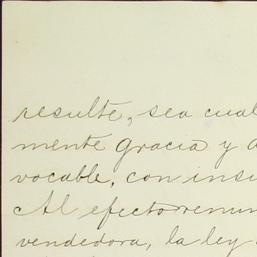 resulte, sea cual
mente gracia y
vocable, con insi
Al efecto renun
vendedora, la ley